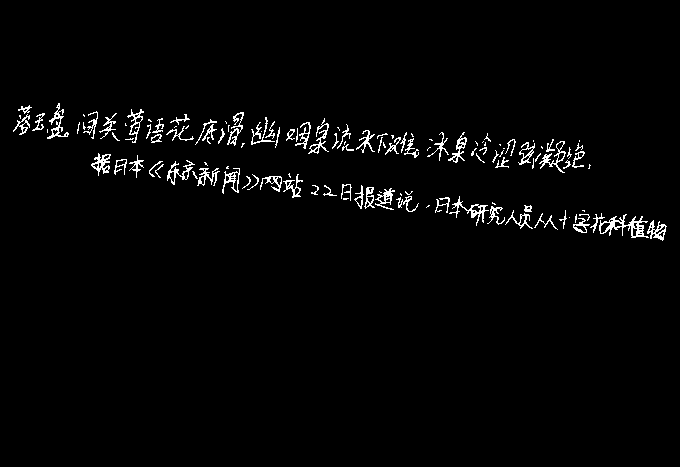 落玉盘。间关莺语花底滑,幽咽泉流水下难。冰泉冷涩弦凝绝,
据日本《东京新闻》网站22日报道说,日本研究人员从十字花科植物